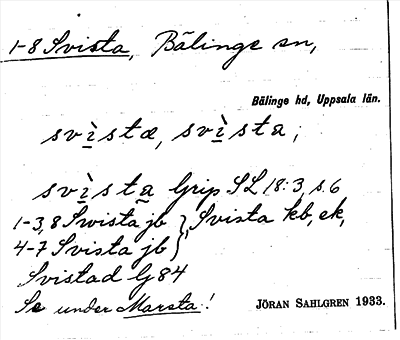 1-8 Svista, Bälinge sn,
Bälinge hd, Uppsala län.
svìstæ, svìsta;
svìsta Grip SL 18:3, s. 6
1-3, 8 Swista jb } Svista kb, ek,
4-7 Svista jb
Svistad Lg 84
Se under Marsta!
JÖRAN SAHLGREN 1933.